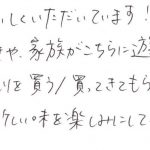 いしくいただいています!
や、家族がこちらに遊
りを買う/買ってきてもら
しい味を楽しみにして